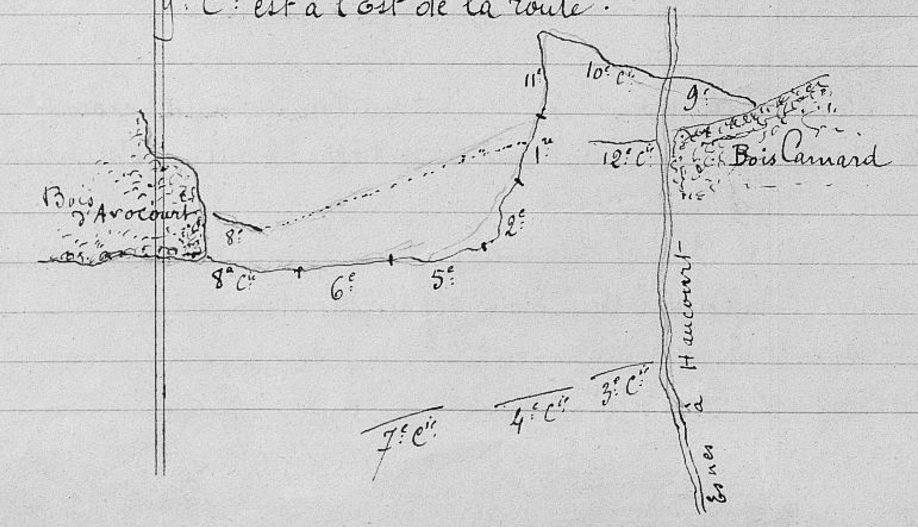 9ᵉ Cⁱᵉ est à l'Est de la route.
11ᵉ
10ᵉ Cⁱᵉ
9ᵉ
1ʳᵉ
12ᵉ Cⁱᵉ
Bois Camard
Bois
d'Avocourt
8ᵉ
2ᵉ
8ᵉ Cⁱᵉ
6ᵉ
5ᵉ
3ᵉ Cⁱᵉ
4ᵉ Cⁱᵉ
7ᵉ Cⁱᵉ
Esnes à Haucourt